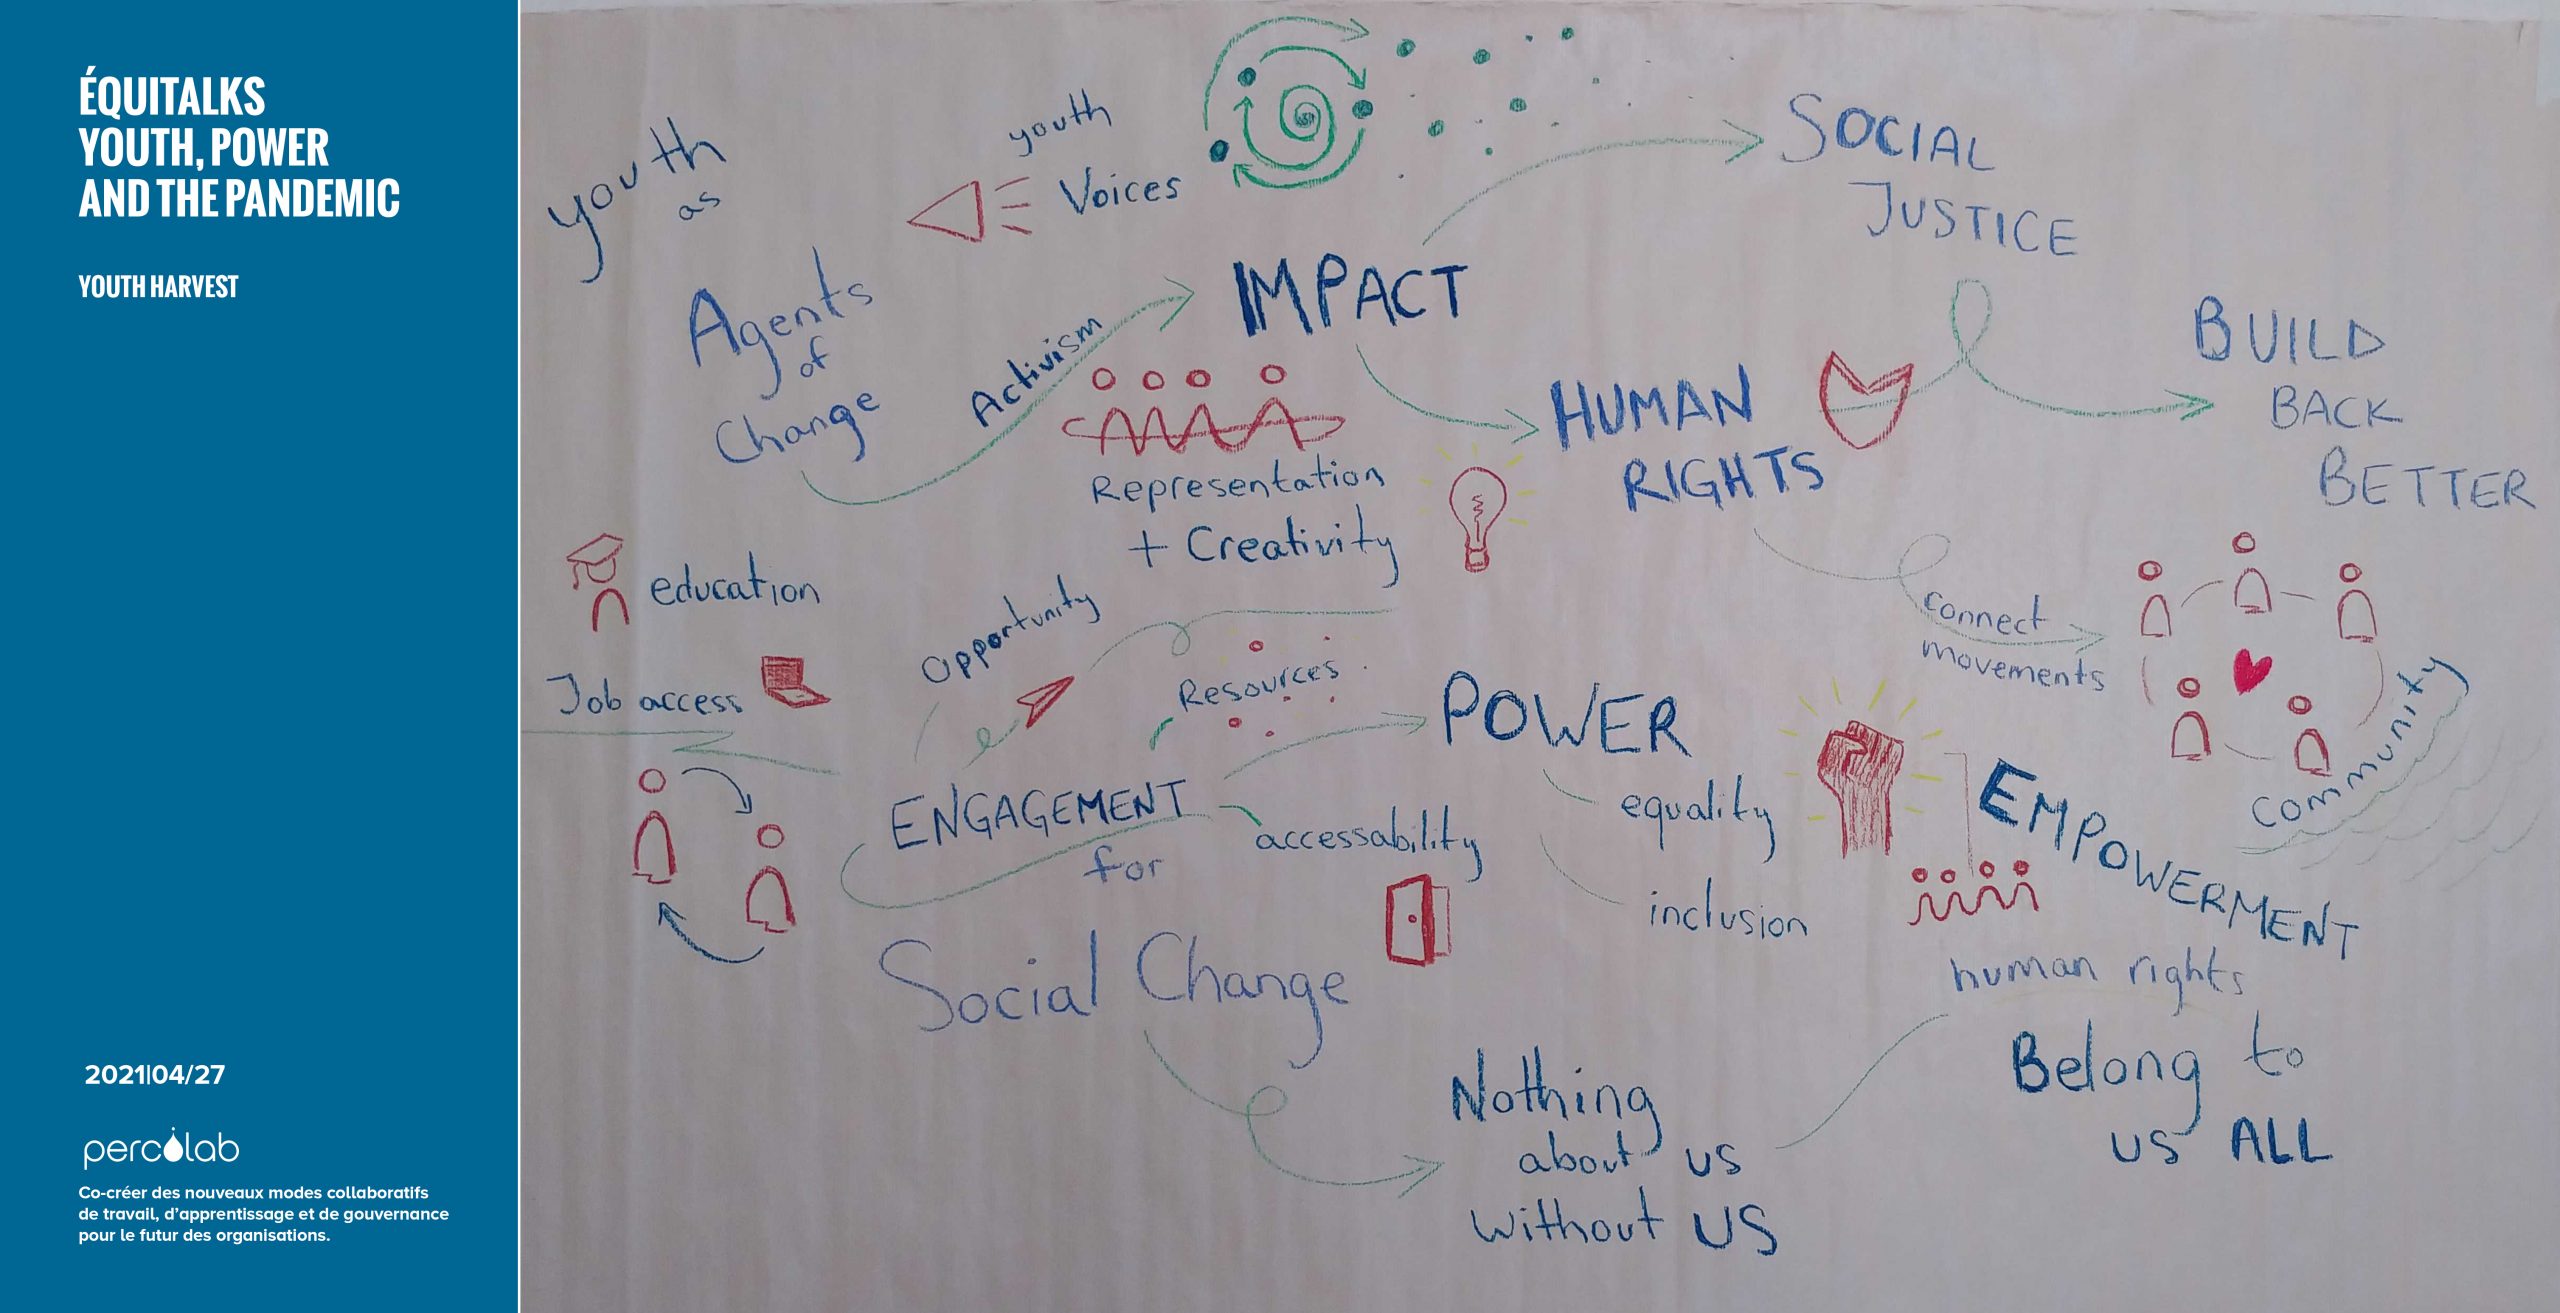 ÉQUITALKS
YOUTH, POWER
AND THE PANDEMIC
YOUTH HARVEST
2021|04/27
percolab
Co-créer des nouveaux modes collaboratifs
de travail, d'apprentissage et de gouvernance
pour le futur des organisations.
youth
as
Agents
of
Change
youth
Voices
Activism
IMPACT
SOCIAL
JUSTICE
Representation
+ Creativity
HUMAN
RIGHTS
BUILD
BACK
BETTER
education
Job access
Opportunity
Resources
connect
movements
community
ENGAGEMENT
for
Social Change
accessability
POWER
equality
inclusion
EMPOWERMENT
human rights
Belong to
us ALL
Nothing
about us
without US